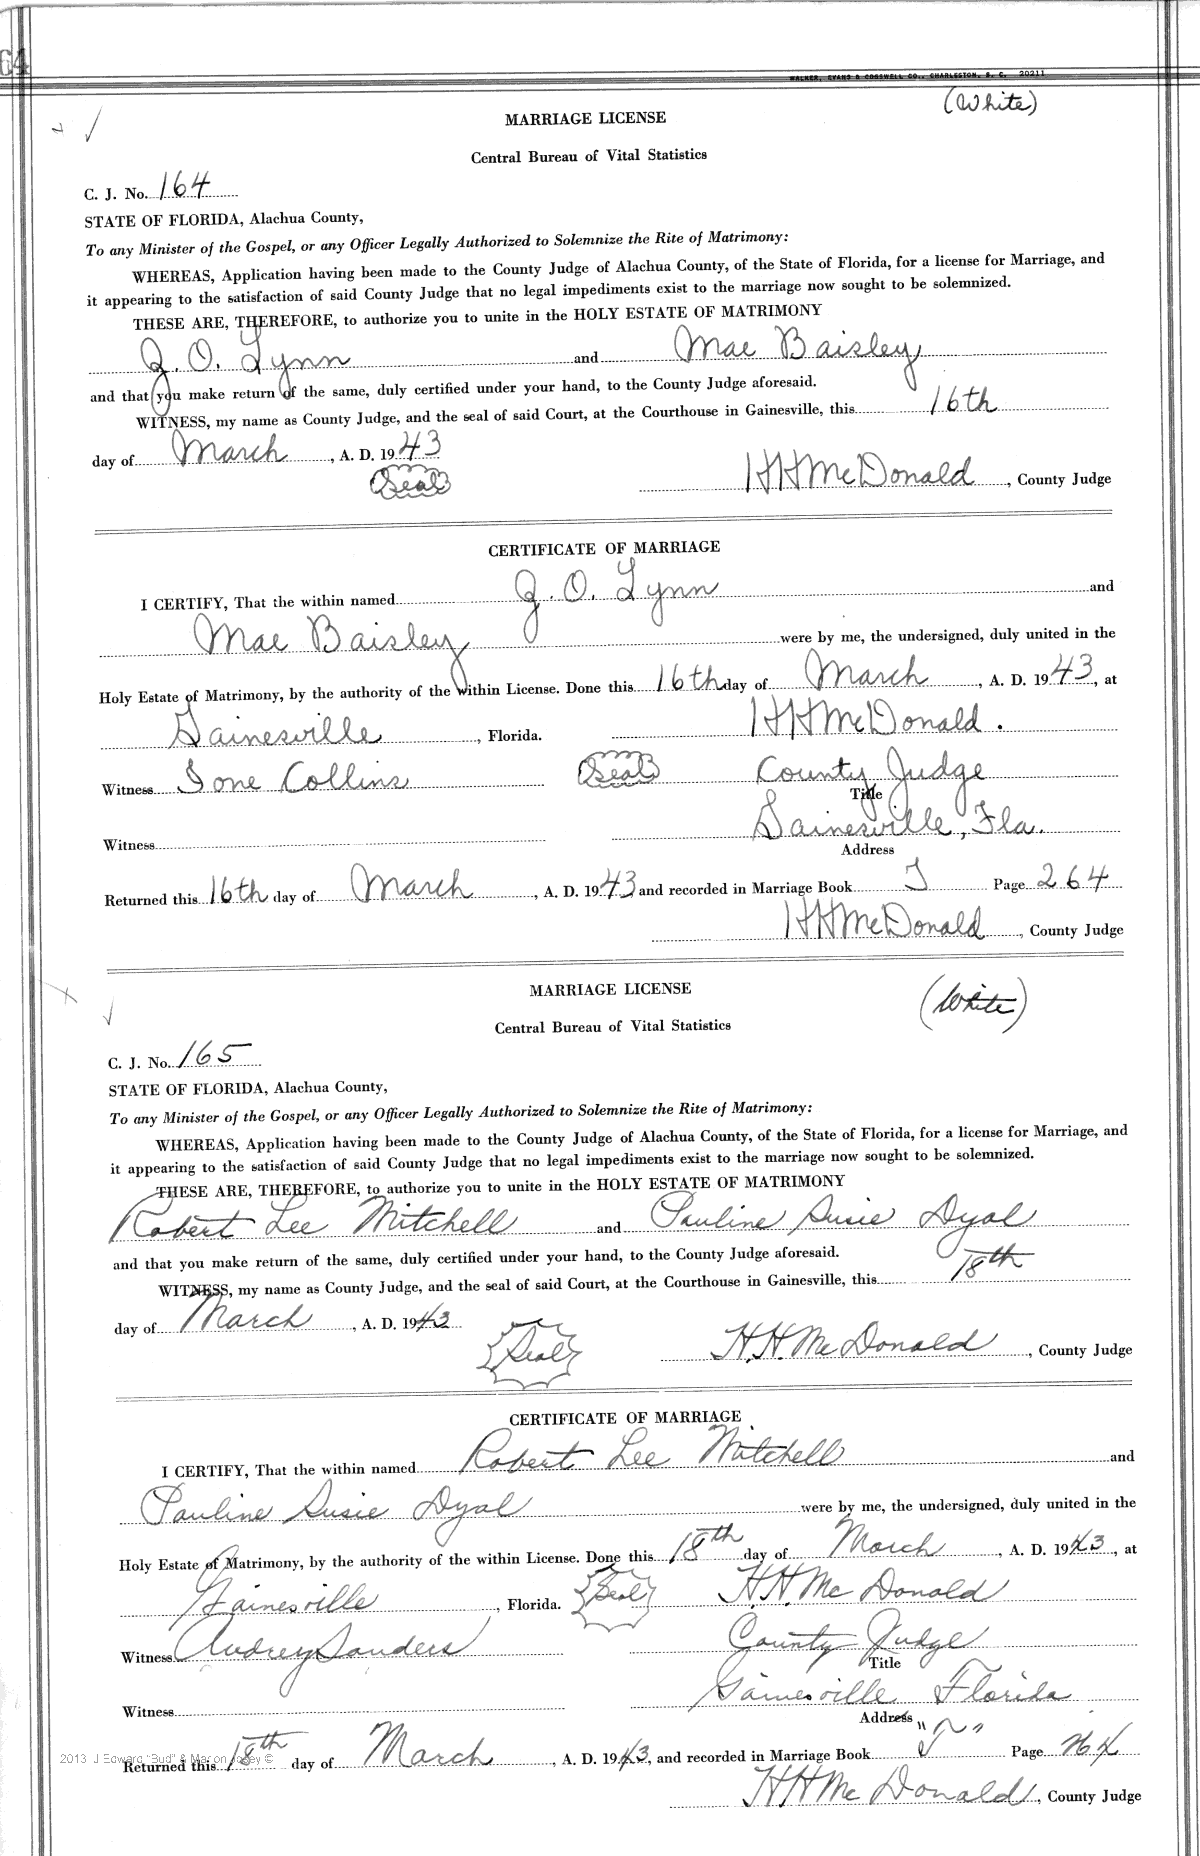 64
WALKER, EVANS & COGSWELL CO., CHARLESTON, S. C. 20211
(White)
MARRIAGE LICENSE
Central Bureau of Vital Statistics
C. J. No. 164
STATE OF FLORIDA, Alachua County,
To any Minister of the Gospel, or any Officer Legally Authorized to Solemnize the Rite of Matrimony:
WHEREAS, Application having been made to the County Judge of Alachua County, of the State of Florida, for a license for Marriage, and
it appearing to the satisfaction of said County Judge that no legal impediments exist to the marriage now sought to be solemnized.
THESE ARE, THEREFORE, to authorize you to unite in the HOLY ESTATE OF MATRIMONY
J. O. Lynn and Mae Baisley
and that you make return of the same, duly certified under your hand, to the County Judge aforesaid.
WITNESS, my name as County Judge, and the seal of said Court, at the Courthouse in Gainesville, this 16th
day of March, A. D. 1943
Seal HHMcDonald, County Judge
CERTIFICATE OF MARRIAGE
I CERTIFY, That the within named J. O. Lynn and
Mae Baisley were by me, the undersigned, duly united in the
Holy Estate of Matrimony, by the authority of the within License. Done this 16th day of March, A. D. 1943, at
Gainesville, Florida. HHMcDonald.
Witness Ione Collins Seal County Judge
Title
Gainesville, Fla.
Witness
Address
Returned this 16th day of March, A. D. 1943 and recorded in Marriage Book Page 264
HHMcDonald, County Judge
MARRIAGE LICENSE (White)
Central Bureau of Vital Statistics
C. J. No. 165
STATE OF FLORIDA, Alachua County,
To any Minister of the Gospel, or any Officer Legally Authorized to Solemnize the Rite of Matrimony:
WHEREAS, Application having been made to the County Judge of Alachua County, of the State of Florida, for a license for Marriage, and
it appearing to the satisfaction of said County Judge that no legal impediments exist to the marriage now sought to be solemnized.
THESE ARE, THEREFORE, to authorize you to unite in the HOLY ESTATE OF MATRIMONY
Robert Lee Mitchell and Pauline Susie Dyal
and that you make return of the same, duly certified under your hand, to the County Judge aforesaid.
WITNESS, my name as County Judge, and the seal of said Court, at the Courthouse in Gainesville, this 18th
day of March, A. D. 1943
Seal H.H. McDonald, County Judge
CERTIFICATE OF MARRIAGE
I CERTIFY, That the within named Robert Lee Mitchell and
Pauline Susie Dyal were by me, the undersigned, duly united in the
Holy Estate of Matrimony, by the authority of the within License. Done this 18th day of March, A. D. 1943, at
Gainesville, Florida. Seal H.H. McDonald
Witness Audrey Sanders County Judge
Title
Gainesville Florida
Witness
Address
Returned this 18th day of March, A. D. 1943, and recorded in Marriage Book Page 264
HHMcDonald, County Judge